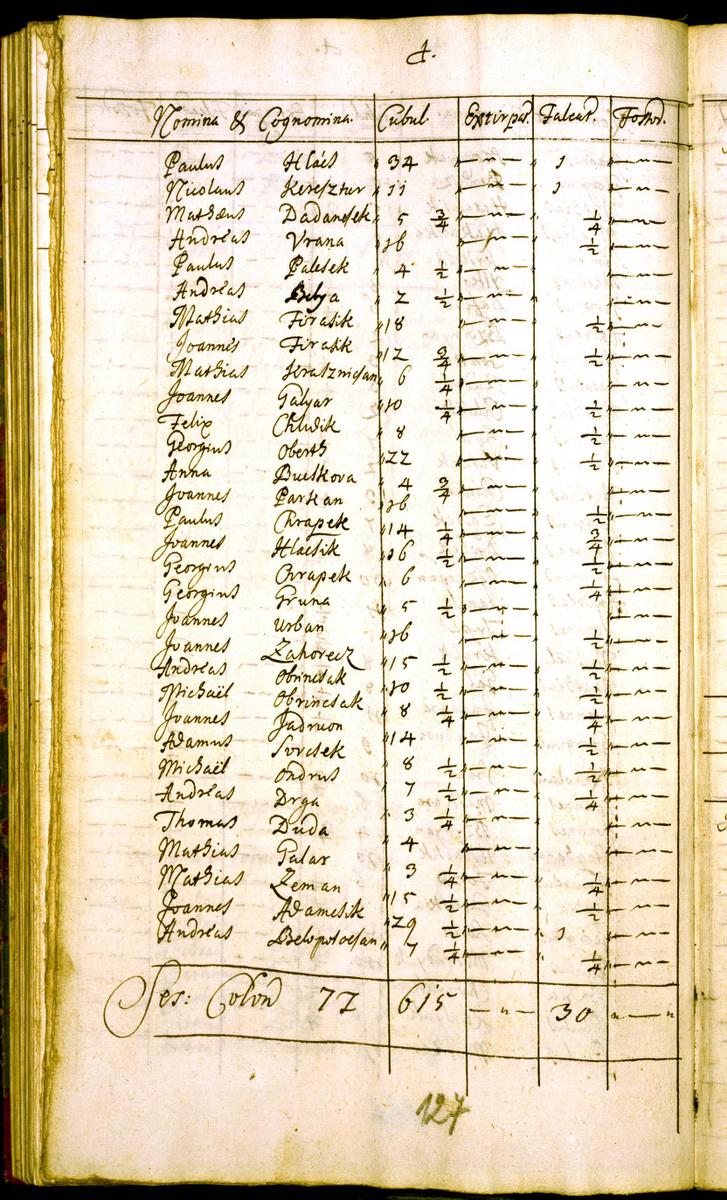 4.
Nomina & Cognomina. Cubul. Extirpat. Falcat. Fossor.
Paulus Hlács " 34 — " — 1 — " —
Nicolaus Keresztur " 11 — " — 1 — " —
Mathæus " 5 3/4 — " — 1/4 — " —
Andreas Vrana " 16 — " — 1/2 — " —
Paulus Palesek " 4 1/2 — " — " — " —
Andreas Belya " 2 1/2 — " — " — " —
Mathias Firasik " 18 — " — 1/2 — " —
Joannes Firasik " 12 3/4 — " — 1/2 — " —
Mathias " 6 1/4 — " — " — " —
Joannes Galyar " 10 1/4 — " — 1/2 — " —
Felix Chludik " 8 — " — 1/2 — " —
Georgius Oberth " 22 — " — 1/2 — " —
Anna " 4 3/4 — " — " — " —
Joannes Parkan " 16 — " — 1/2 — " —
Paulus Chrapek " 14 1/4 — " — 3/4 — " —
Joannes Hlacsik " 16 1/2 — " — 1/2 — " —
Georgius Chrapek " 6 — " — 1/4 — " —
Georgius Gruna " 5 1/2 — " — " — " —
Joannes Urban " 16 — " — 1/2 — " —
Joannes Zahorecz " 15 1/2 — " — 1/2 — " —
Andreas Obrincsak " 10 1/2 — " — 1/2 — " —
Michaël Obrincsak " 8 1/4 — " — 1/4 — " —
Joannes " 14 — " — 1/2 — " —
Adamus Svrcsek " 8 1/2 — " — 1/2 — " —
Michaël Ondrus " 7 1/2 — " — 1/4 — " —
Andreas Drga " 3 1/4 — " — " — " —
Thomas Duda " 4 — " — " — " —
Mathias Galar " 3 1/4 — " — 1/4 — " —
Mathias Zeman " 15 1/2 — " — 1/2 — " —
Joannes Adamcsik " 29 1/2 — " — 1 — " —
Andreas Belopotocsan " 7 1/4 — " — 1/4 — " —
Ses: Colon 77 615 — " — 30 " — "
127